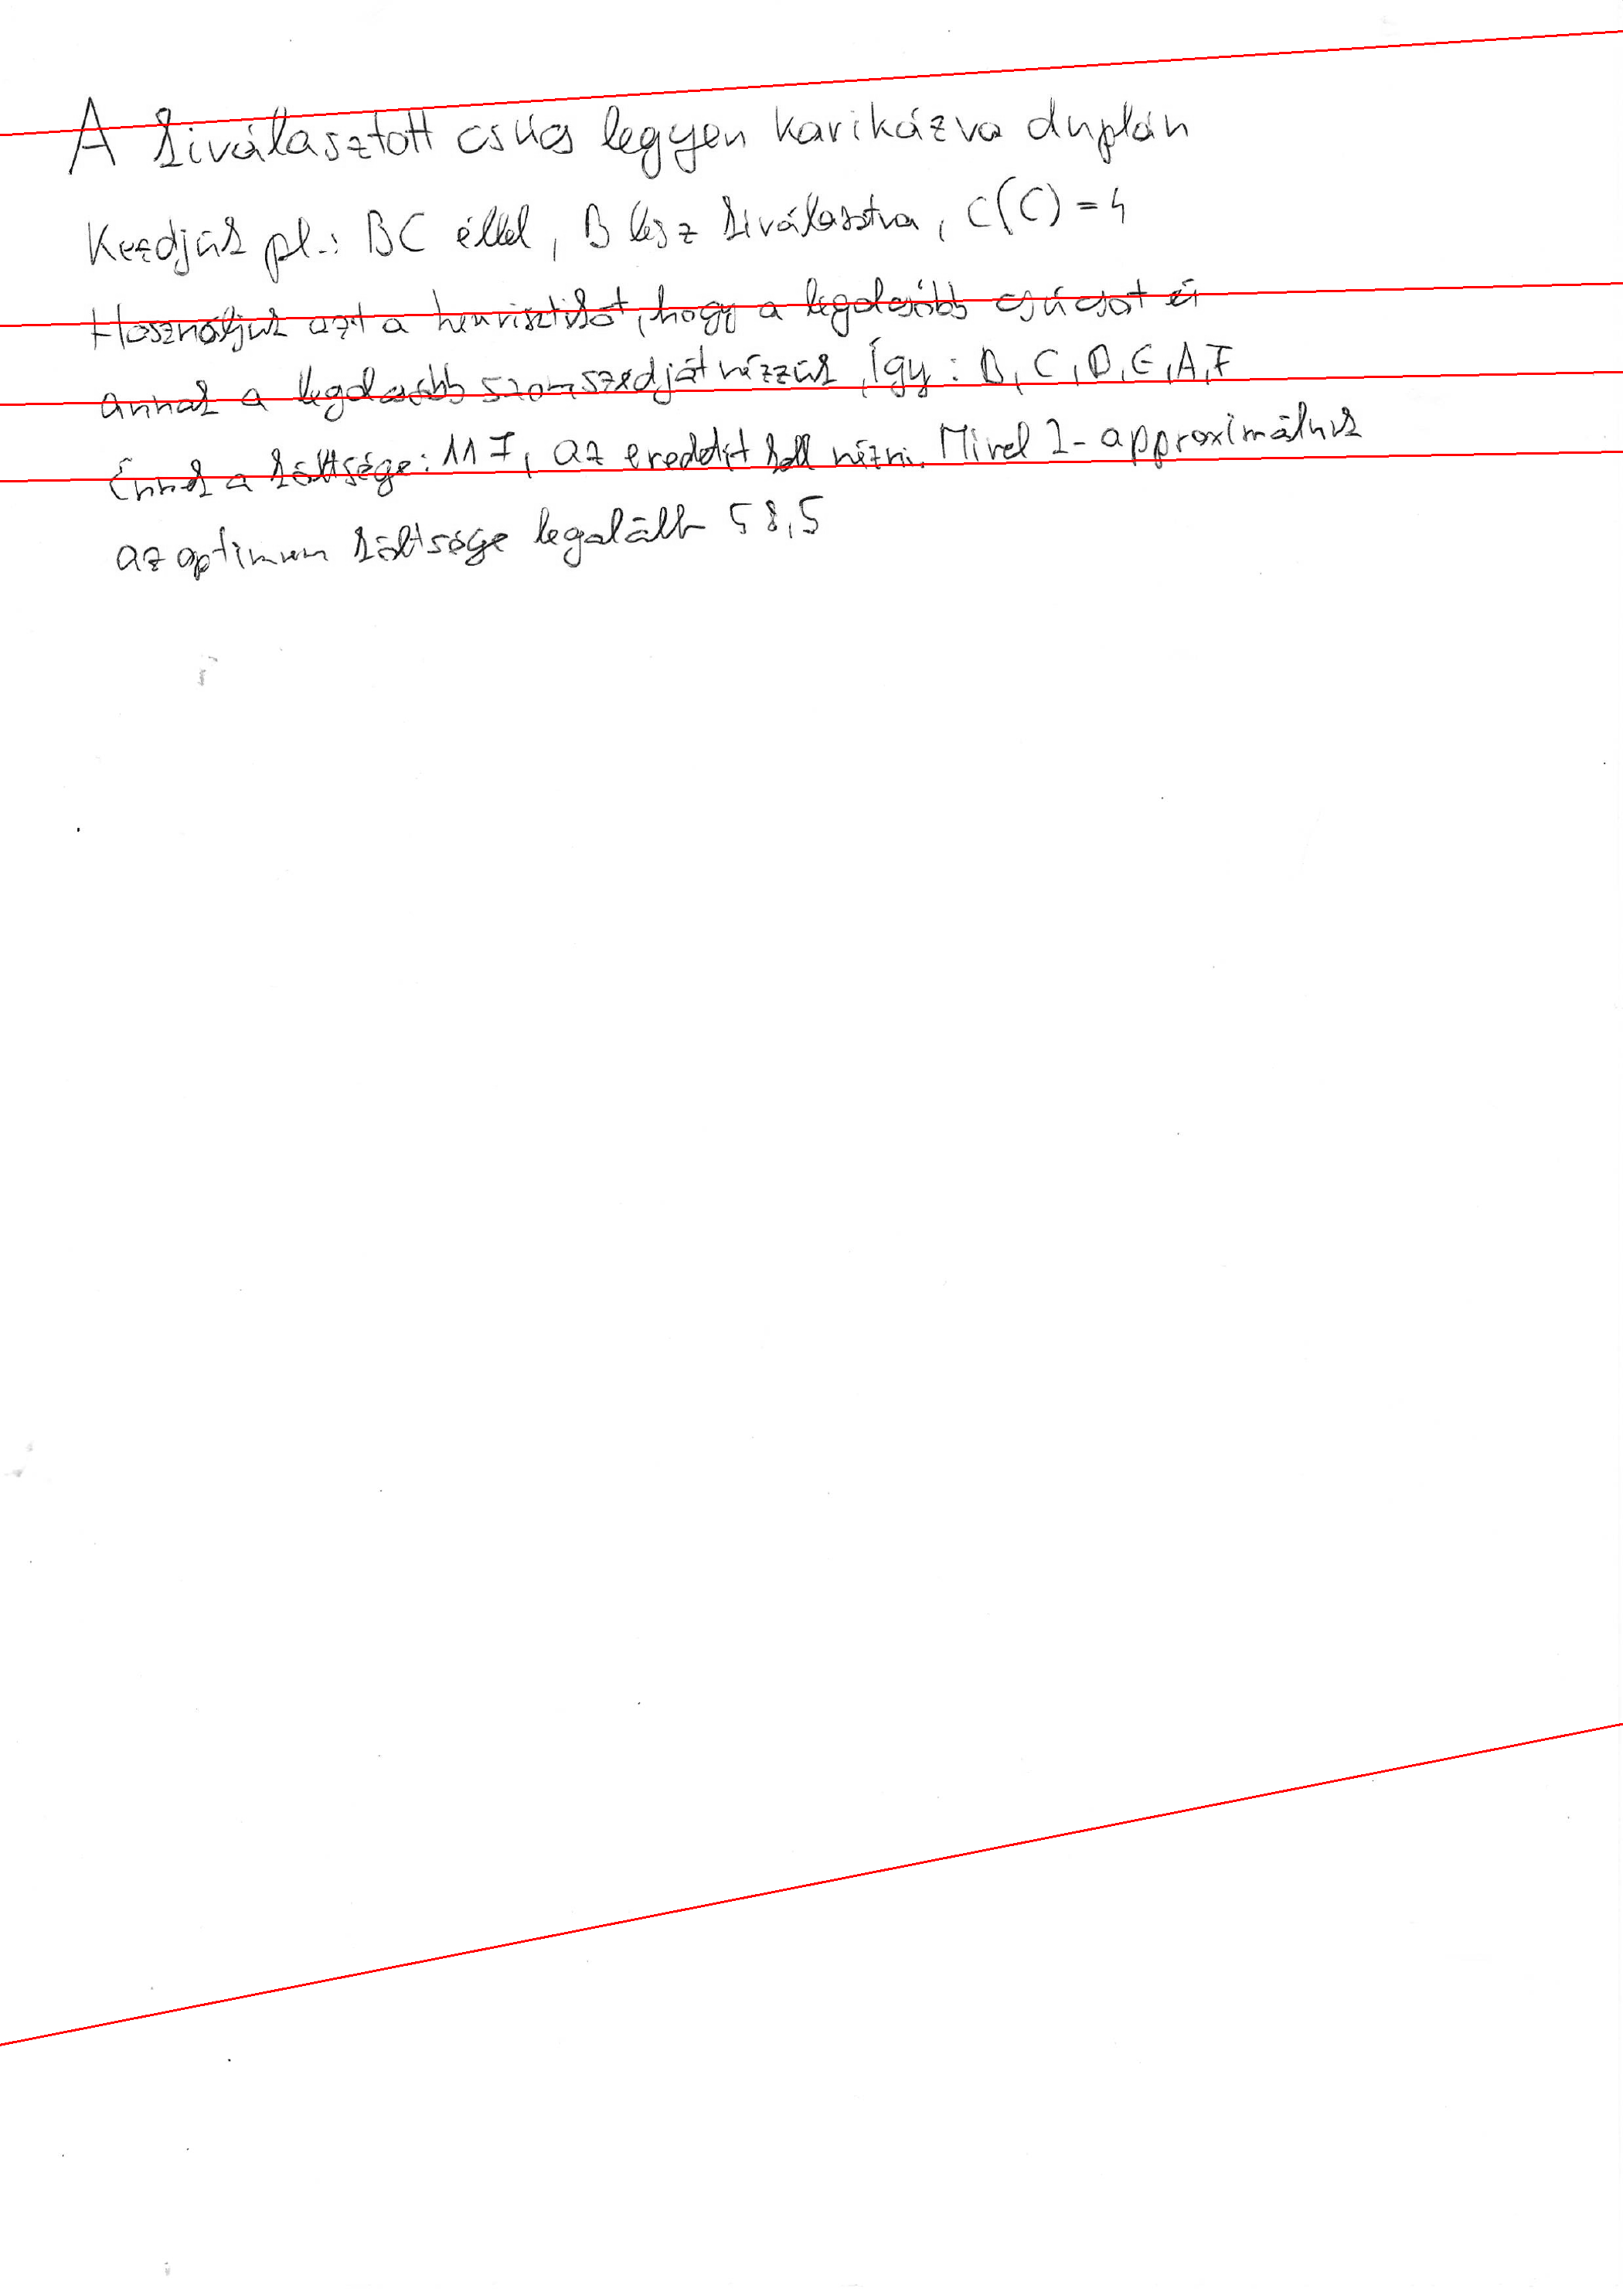 A kiválasztott csúcs legyen karikázva duplán
Kezdjük pl.: BC éllel, B lesz kiválasztva, C(C) = 4
Használjuk azt a heurisztikát, hogy a legolcsóbb csúcsot és
annak a legolcsóbb szomszédját nézzük, Így: B, C, D, E, A, F
Ennek a költsége: 117, az eredetit kell nézni. Mivel 2-approximálunk
az optimum költsége legalább 58,5